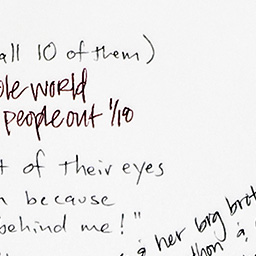 all 10 of them)
ole world
people out 1/10
t of their eyes
n because
behind me!"
& her big brot
thon &